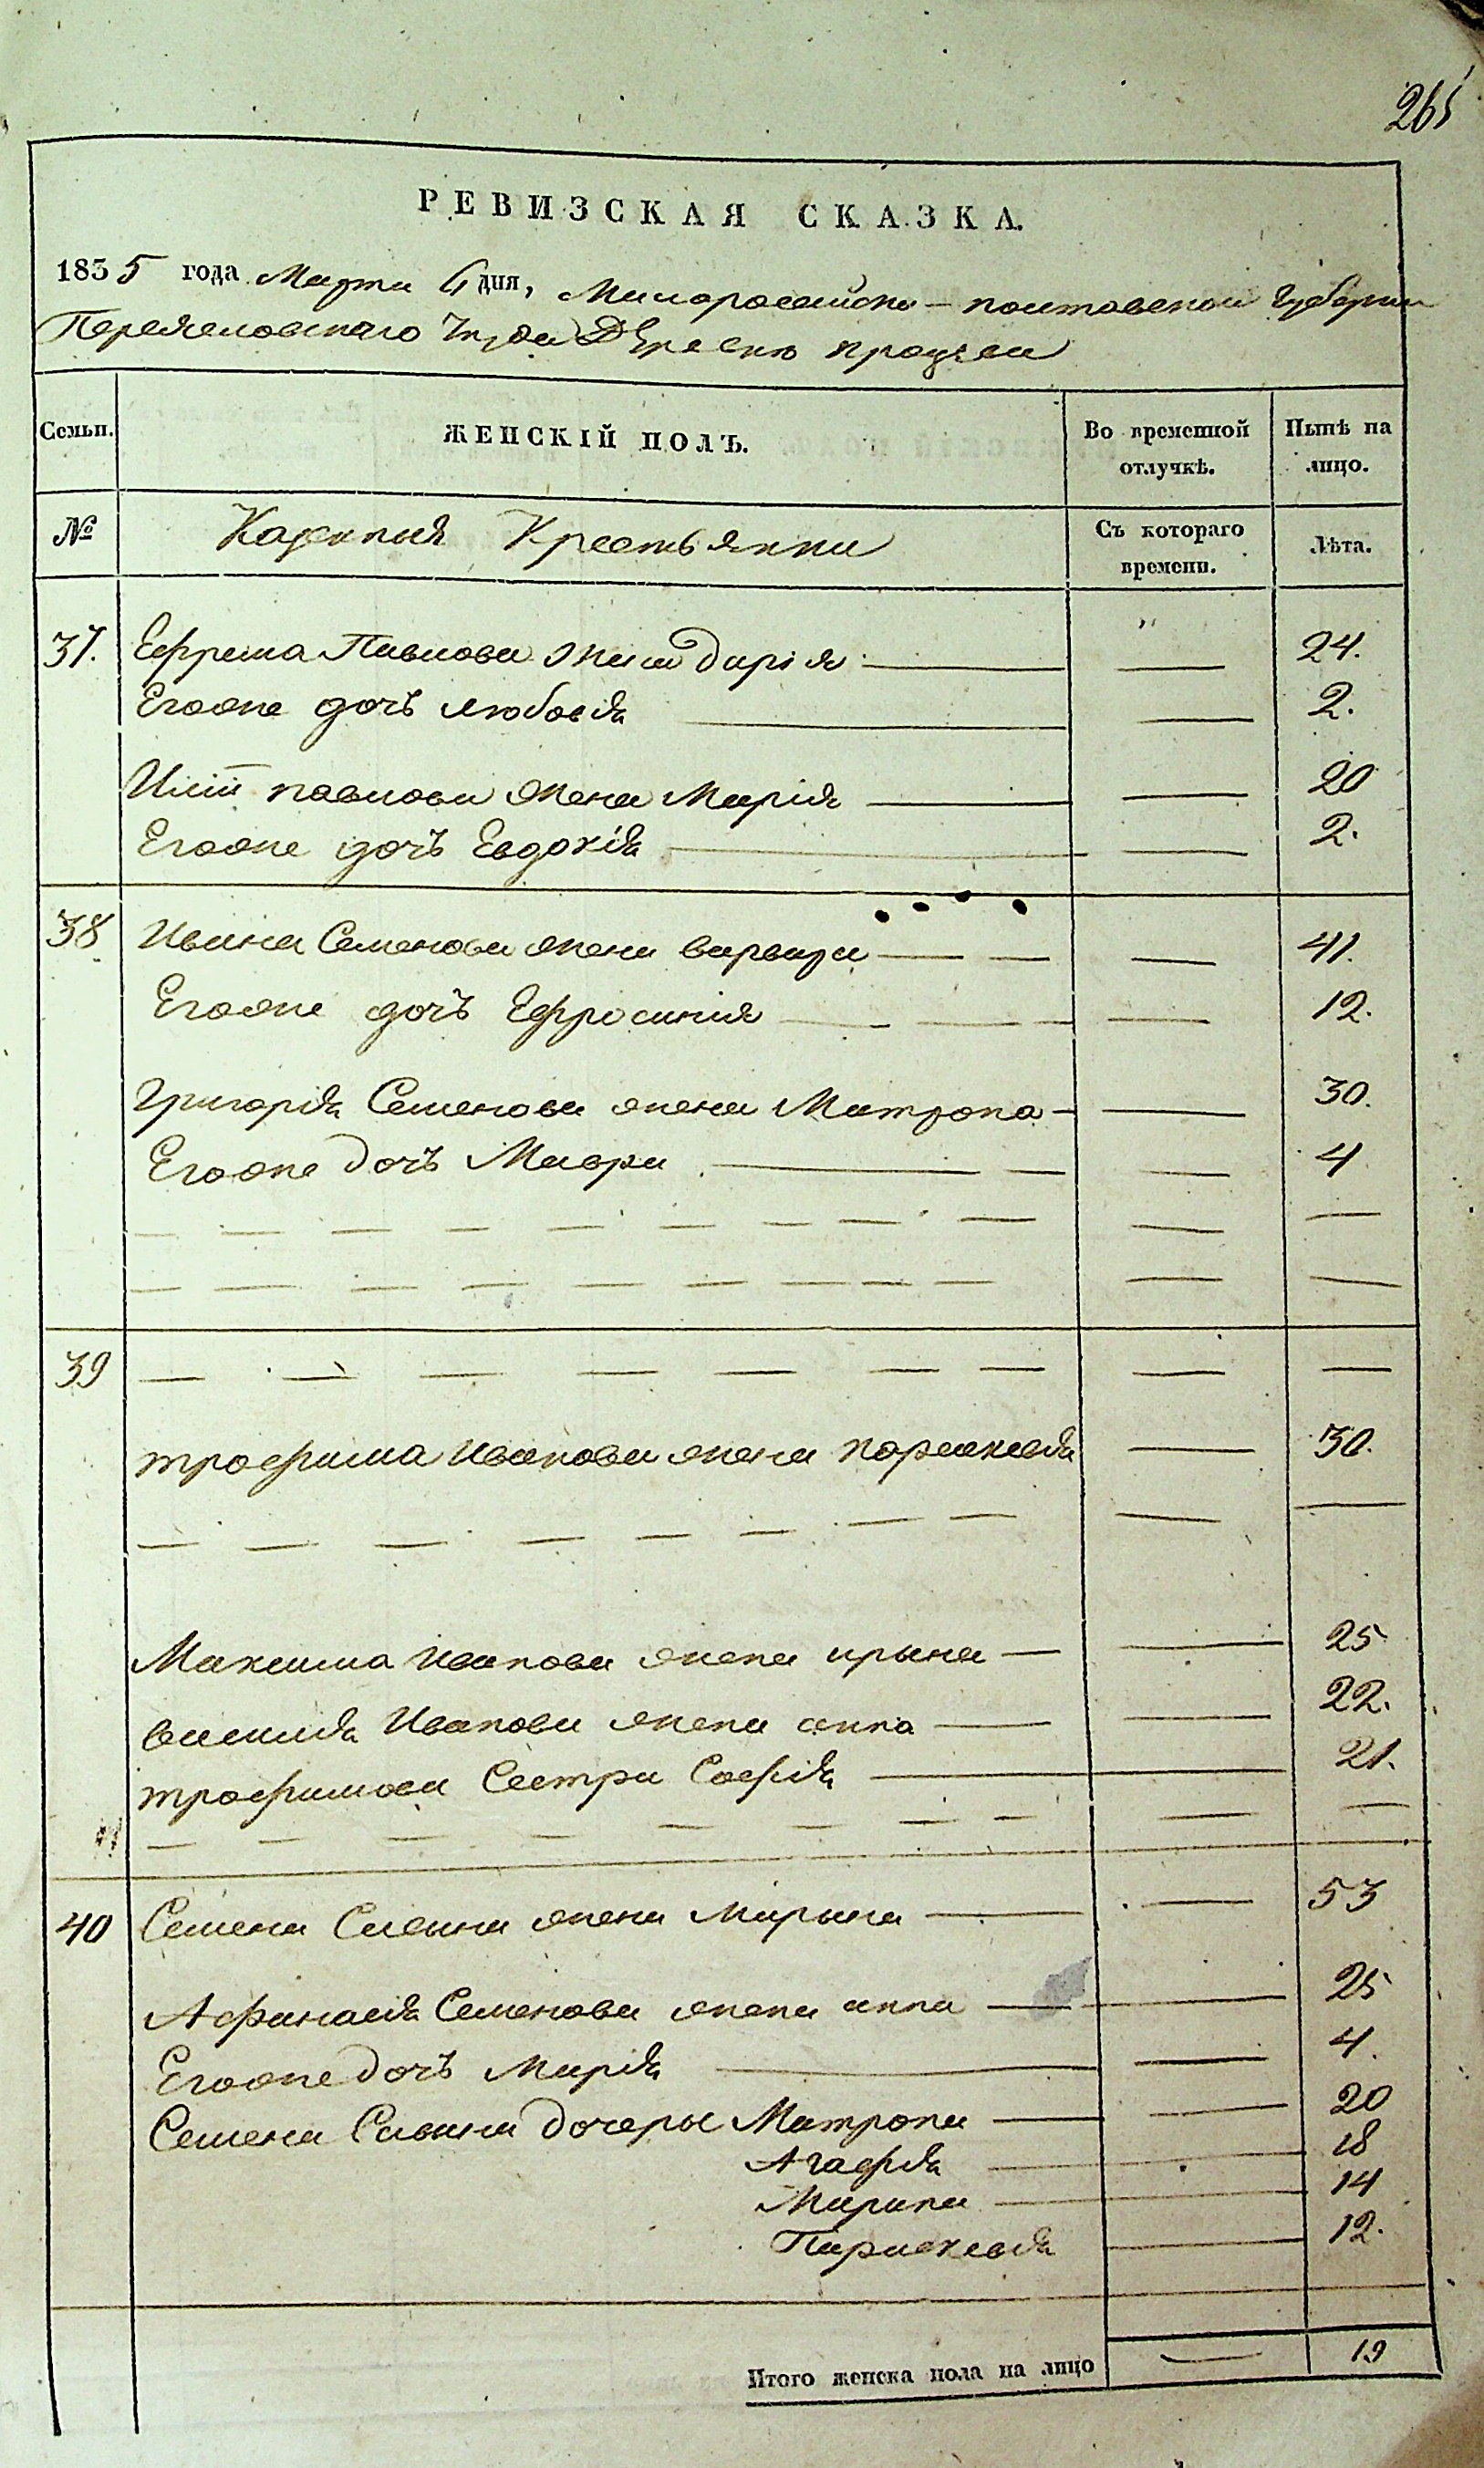 265
РЕВИЗСКАЯ СКАЗКА.
1835 года Марта 6 дня, Малоросейско-полтавской Губернии
Переяславского деревни
Семьи. ЖЕНСКІЙ ПОЛЪ. Во временной отлучкѣ. Нынѣ на лицо.
№ Казенния Крестьянки Съ котораго времени. Лѣта.
37. Ефрема Павлова жена Дарія — — 24.
Егоже дочъ любовія — — 2.
павлова жена Марія — — 20
Егоже дочъ Евдокія — — 2.
38 Ивана Семенова жена варвара — — 41.
Егоже дочъ Ефросинія — — 12.
Григорія Семенова жена Матрона — — 30.
Егоже дочъ Мавра — — 4
39
трофима Иванова жена параскевія — 30.
Максима Иванова жена ирына — — 25
василія Иванова жена анна — — 22.
трофимова Сестра Софія — 21.
40 Семена Савина жена Марына — — 53
Афанасія Семенова жена анна — — 25
Егоже дочъ Марія — — 4.
Семена Савина дочеры Матрона — — 20
Агафія — 18
Марина — 14
Параскевія — 12.
Итого женска пола на лицо — 19